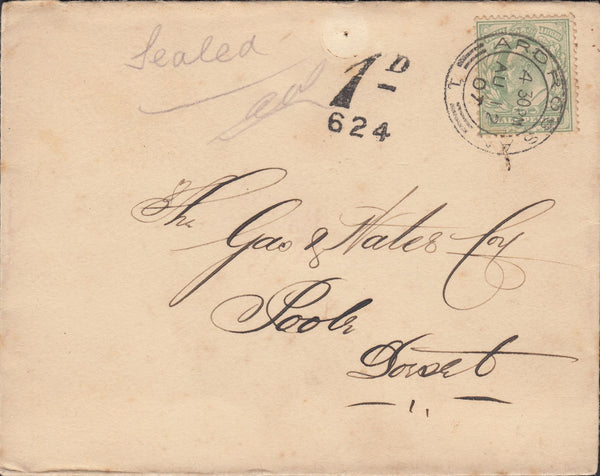 Sealed
1D
624
ARDROSSAN
4 30PM
AU 12
07
The Gas & Water Coy
Poole
Dorset